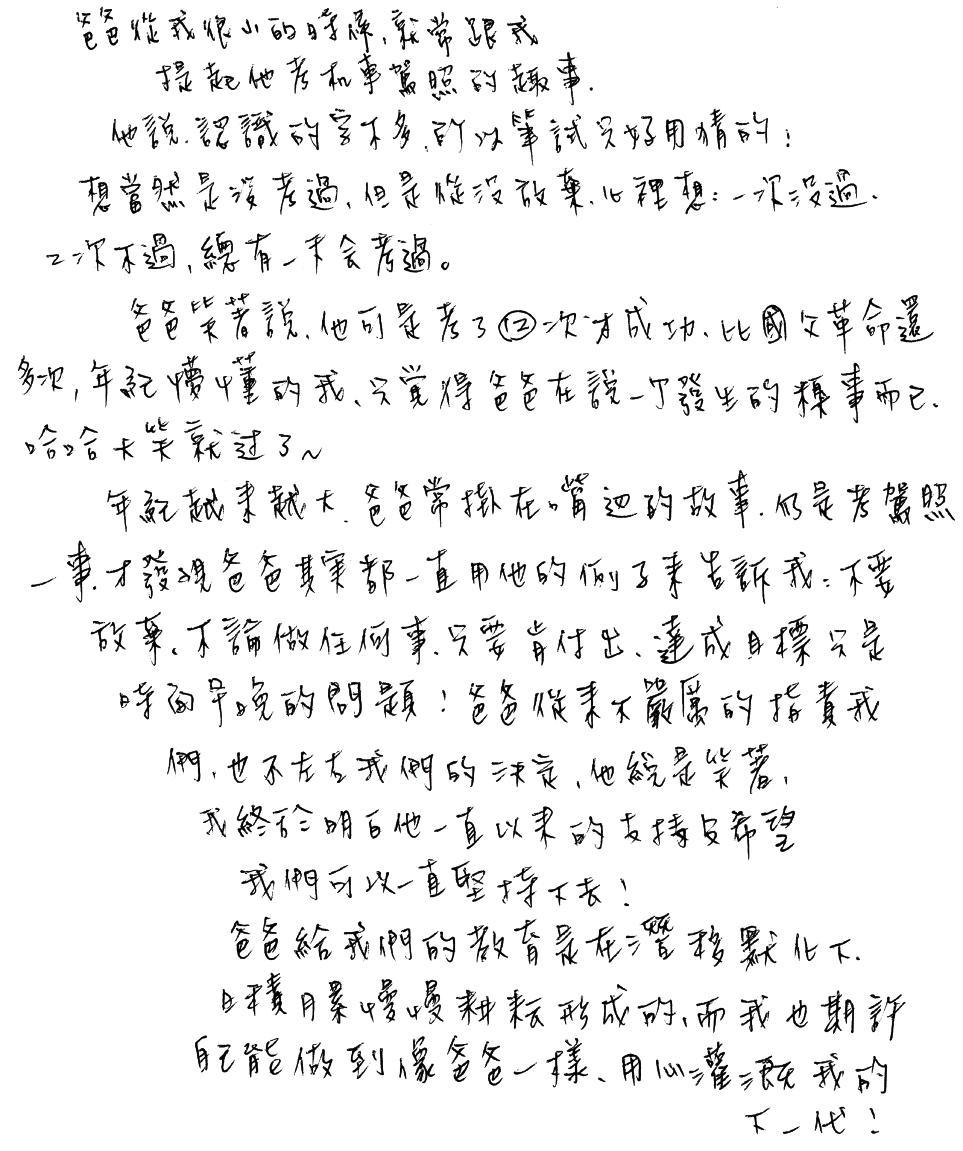 爸爸從我很小的時候,就常跟我
提起他考机車駕照的趣事.
他說.認識的字不多.所以筆試只好用猜的!
想當然是沒考過.但是從沒放棄.心裡想:一次沒過.
二次不過,總有一天会考過。
爸爸笑著說.他可是考了⑫次才成功.比國父革命還
多次,年紀懵懂的我.只覺得爸爸在說一个發生的糗事而已.
哈哈大笑就过了~
年紀越來越大.爸爸常掛在嘴边的故事.仍是考駕照
一事.才發現爸爸其实都一直用他的例子來告訴我:不要
放棄.不論做任何事.只要肯付出.達成目標只是
時間早晚的問題!爸爸從來不嚴厲的指責我
們.也不左右我們的決定.他總是笑著.
我終於明白他一直以來的支持與希望
我們可以一直堅持下去!
爸爸給我們的教育是在潛移默化下.
日積月累慢慢耕耘形成的.而我也期許
自己能做到像爸爸一樣.用心灌溉我的
下一代!